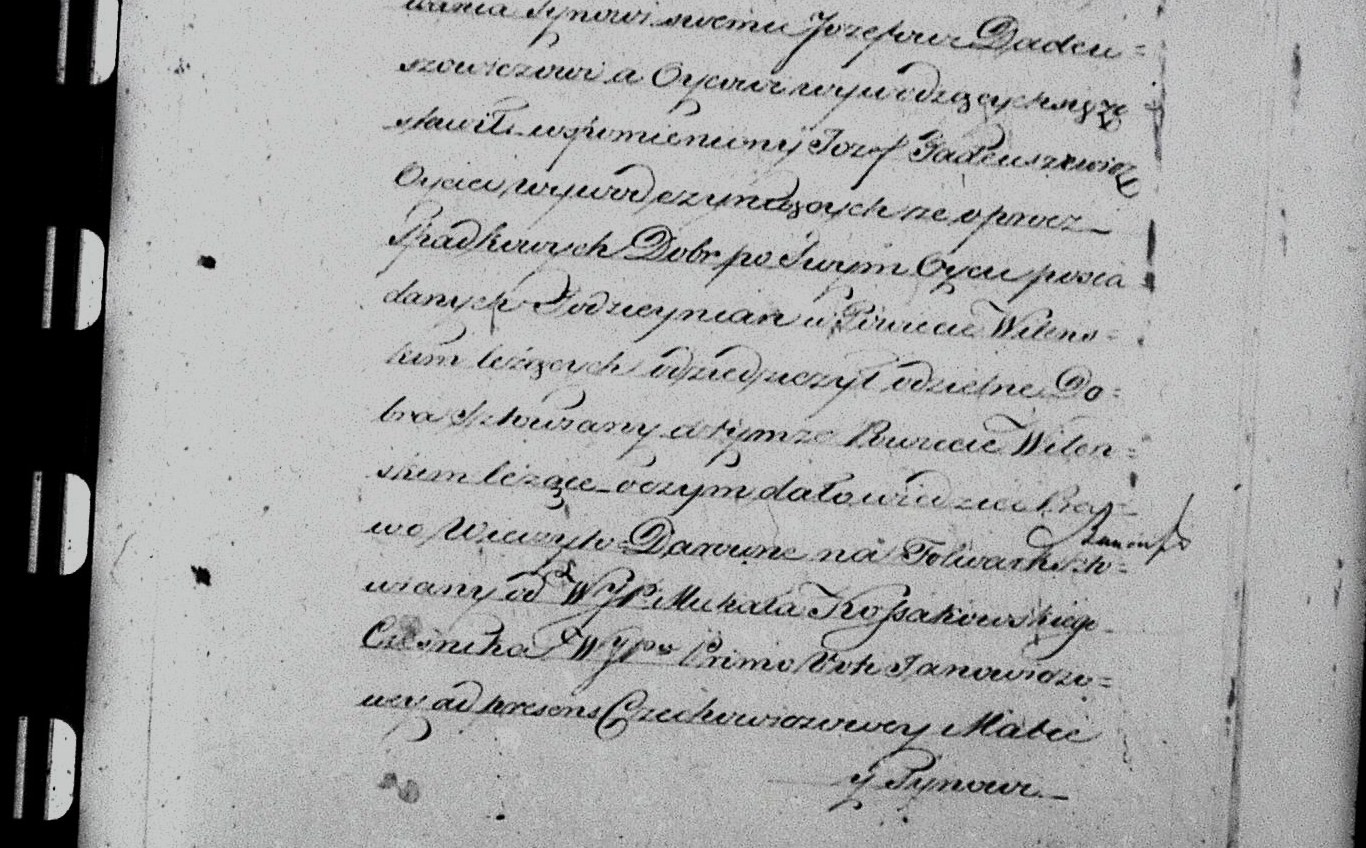 wania Synowi swemu Jozefowi Dadeu=
szowiczowi a Oycowi wywodzących się ze=
stawił wspomieniony Jozef Tadeuszewicz
Oyciec wywod czyniących że oprocz
Pradkowych Dobr po Swym Oycu posia
danych Todzieynian w Powiecie Wilens=
kim leżących odziedziczył odzielne Do=
bra Sztowiany w tymże Powiecie Wilen=
skim leżące oczym dało wiedzieć Pra=
wo Wieczysto Darowne na Folwark Szto=
wiany od WJP Michała Kossakowskiego
Cześnika & WJPa Primo Voti Janowiczo=
wey ad presens Czechowiczowey Matce
y Synowi